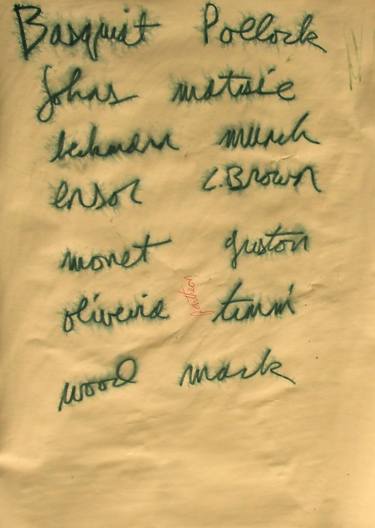 Basquiat Pollock
Johns matisse
beckmann munch
ensor C.Brown
monet guston
oliveira timm
wood mark